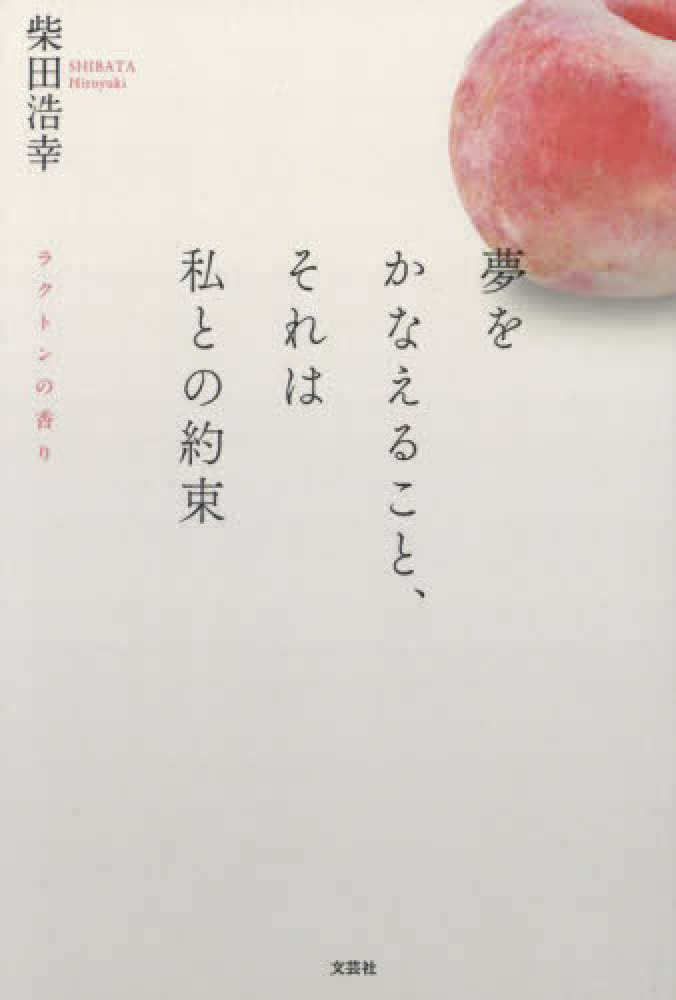 夢を
かなえること、
それは
私との約束
ラクトンの香り
柴田浩幸
SHIBATA
Hiroyuki
文芸社